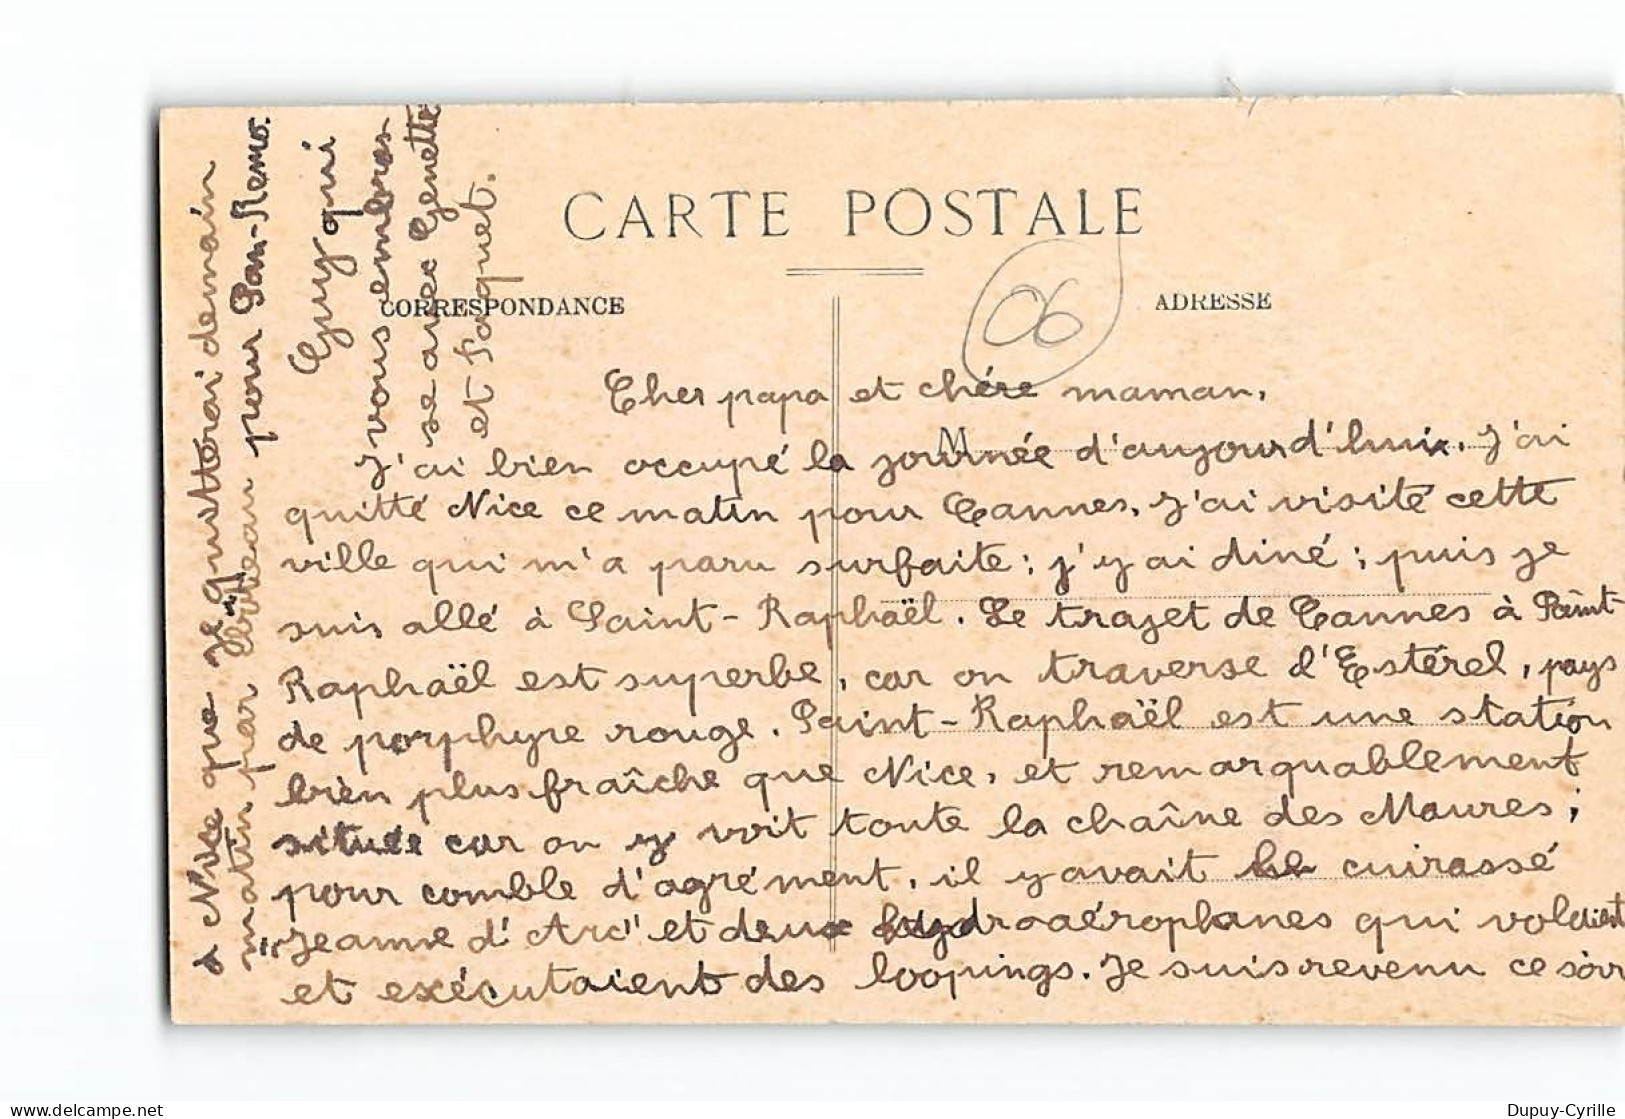 CARTE POSTALE
CORRESPONDANCE
ADRESSE
06
M
Cher papa et chére maman,
J'ai bien occupé la journée d'aujourd'hui. J'ai
quitté Nice ce matin pour Cannes, j'ai visité cette
ville qui m'a paru surfaite ; j'y ai diné ; puis je
suis allé à Saint-Raphaël. Le trajet de Cannes à Saint-
Raphaël est superbe, car on traverse l'Estérel, pays
de porphyre rouge. Saint-Raphaël est une station
bien plus fraîche que Nice, et remarquablement
située car on y voit toute la chaîne des Maures ;
pour comble d'agrément, il y avait le cuirassé
"Jeanne d'Arc" et deux hydroaéroplanes qui volaient
et exécutaient des loopings. Je suis revenu ce soir
à Nice que je quitterai demain
matin par bateau pour San-Remo.
Guy qui
vous embras
se avec Genette
et Paquet.
Dupuy-Cyrille